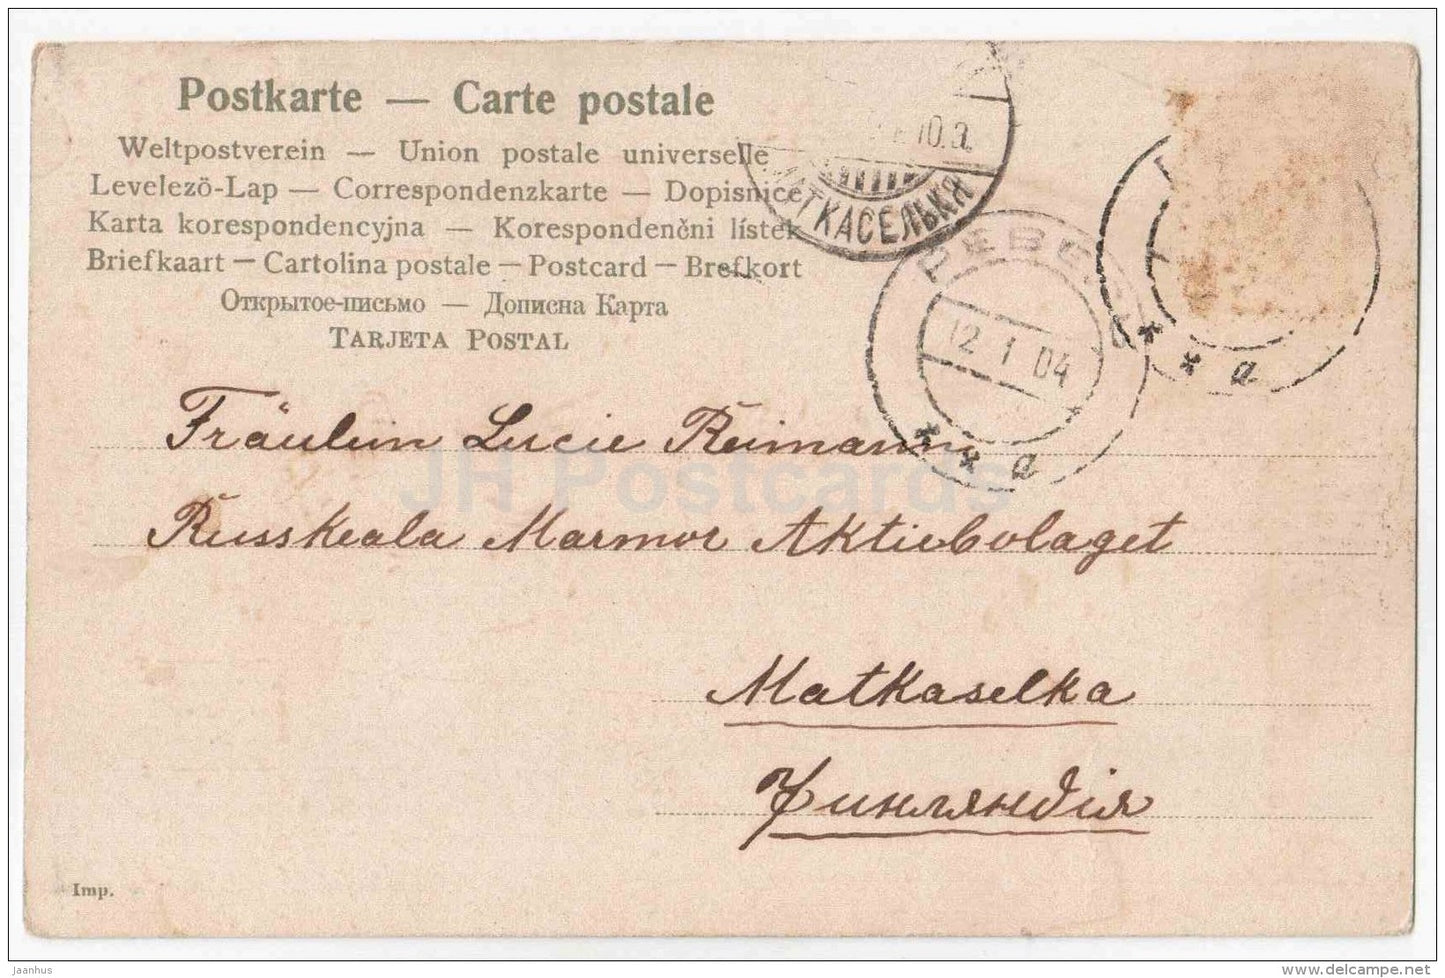 Postkarte — Carte postale
Weltpostverein — Union postale universelle
Levelezö-Lap — Correspondenzkarte — Dopisnice
Karta korespondencyjna — Korespondenčni lístek
Briefkaart — Cartolina postale — Postcard — Brefkort
Открытое-письмо — Дописна Карта
TARJETA POSTAL
12 1 04
a
a
Fräulein Lucie Reimann
Russkeala Marmor Aktiebolaget
Matkaselka
Финляндія
Imp.
JH Postcards
jaanhus
delcampe.net